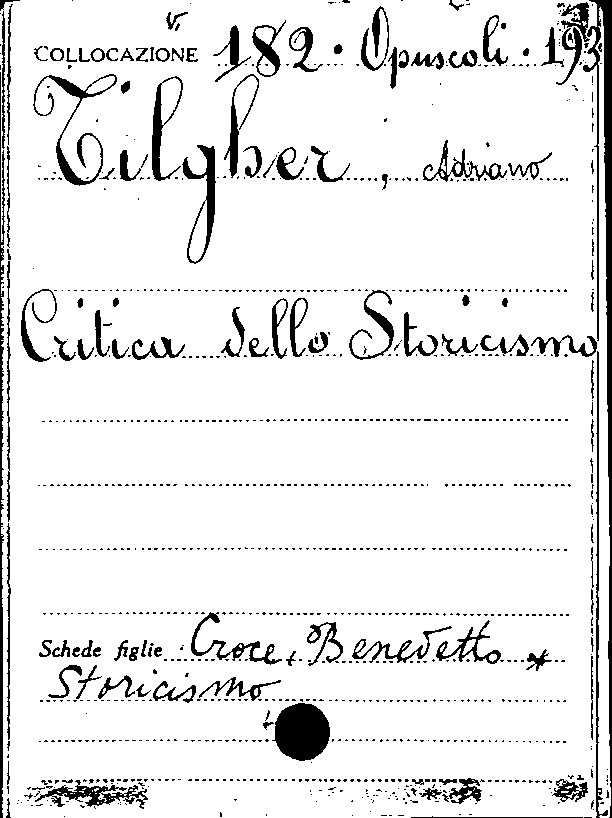 v.
COLLOCAZIONE 182 · Opuscoli · 193
Tilgher, Adriano
Critica dello Storicismo
Schede figlie Croce, Benedetto *
Storicismo